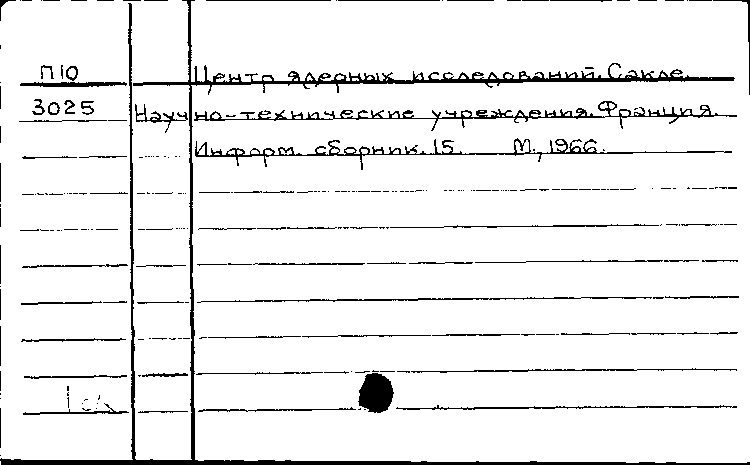 П10 Центр ядерных исследований. Сакле.
3025 Научно-технические учреждения. Франция.
Информ. сборник. 15. М., 1966.